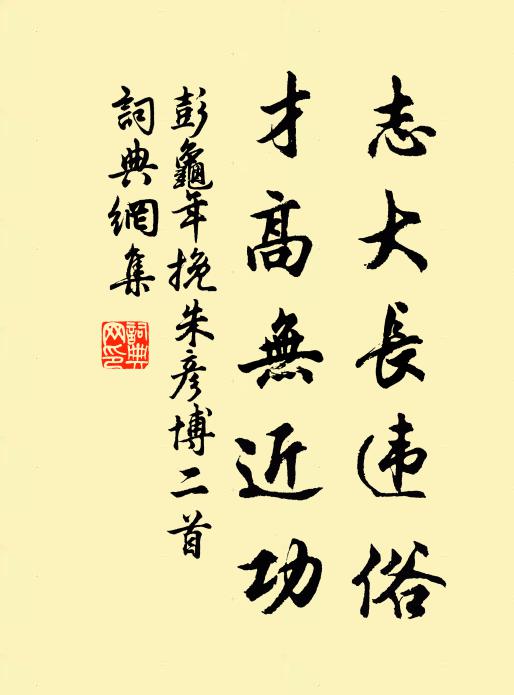 志大長违俗
才高無近功
彭龜年挽朱彦博二首
詞典網集
詞典網印